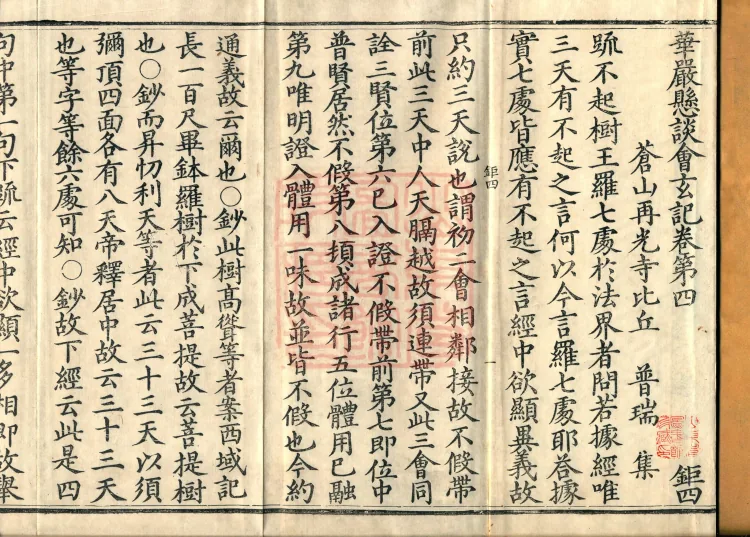 華嚴懸談會玄記卷第四
鉅四
蒼山再光寺比丘 普瑞 集
䟽不起樹王羅七處於法界者問若據經唯
三天有不起之言何以今言羅七處耶荅據
實七處皆應有不起之言經中欲顯異義故
鉅四
一
只約三天說也謂初二會相鄰接故不假帶
前此三天中人天膈越故須連帶又此三會同
詮三賢位第六已入證不假帶前第七即位中
普賢居然不假第八頓成諸行五位體用已融
第九唯明證入體用一味故並皆不假也今約
通義故云爾也〇鈔此樹高聳等者案西域記
長一百尺畢鉢羅樹於下成菩提故云菩提樹
也〇鈔而昇忉利天等者此云三十三天以須
彌頂四面各有八天帝釋居中故云三十三天
也等字等餘六處可知〇鈔故下經云此是四
句中第一句下䟽云經中欲顯一多相即故舉